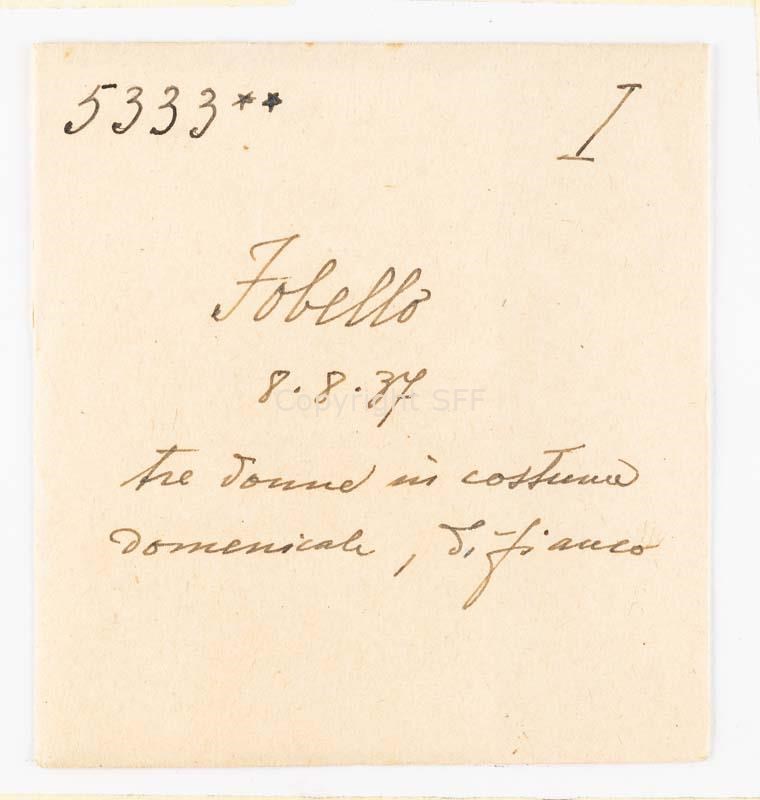 5333** I
Fobello
8.8.37
Copyright SFF
tre donne in costume
domenicale, di fianco